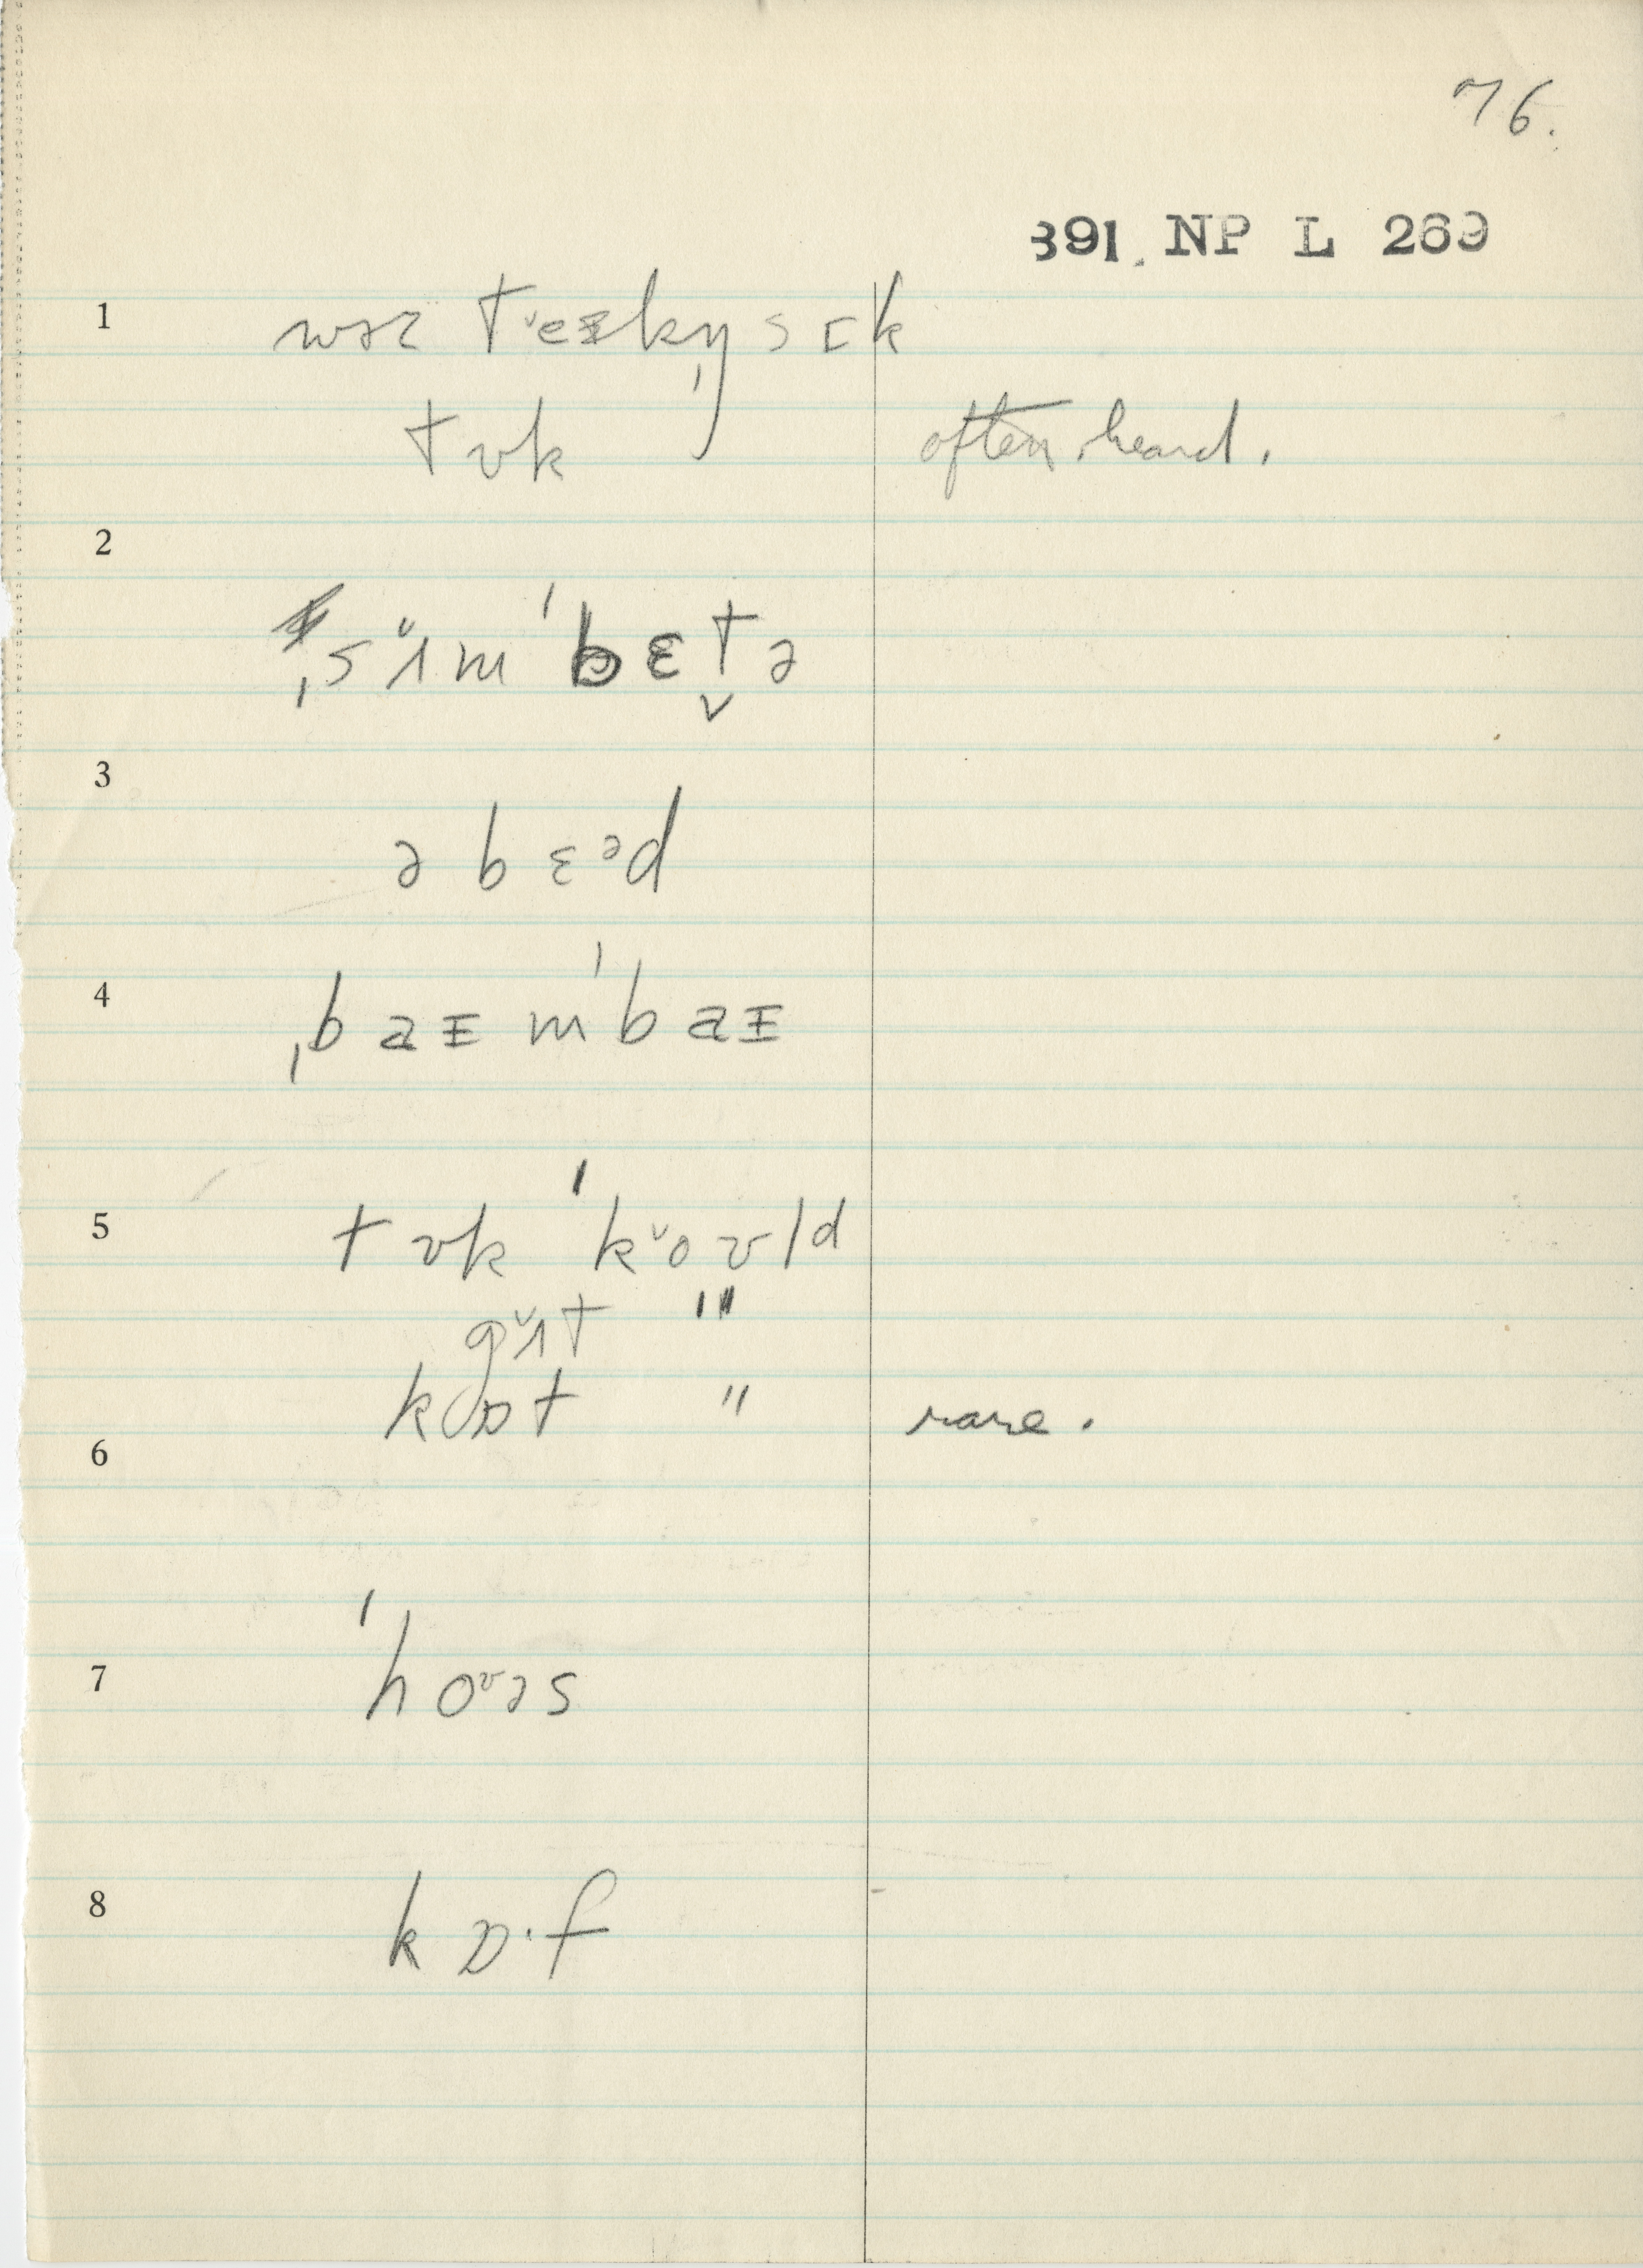 76.
391. NP L 269
1 wəz t˅eᵻkŋ̩ sɪk
tʊk often heard.
2
ˌsʌ̆m ˈbɛt̬ə
3
ə bɛᵊd
4 ˌbaᵻmˈbaᵻ
5 tʊk ˈk˅oʊld
gʌ̆t "
kɒt " rare.
6
7 ˈhoᶷəs
8 kɒ·f